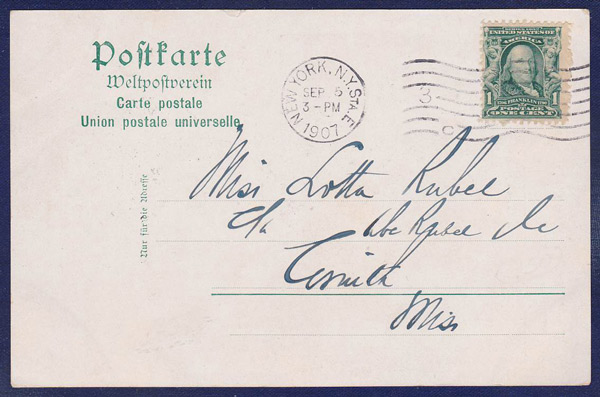 Postkarte
Weltpostverein
Carte postale
Union postale universelle
Nur für die Adresse
NEW YORK, N.Y. STA E
SEP 6
3-PM
1907
3
UNITED STATES OF AMERICA
1 FRANKLIN 1
POSTAGE
ONE CENT
Miss Lotta Rubel
c/o Abe Rubel
Corinth
Miss